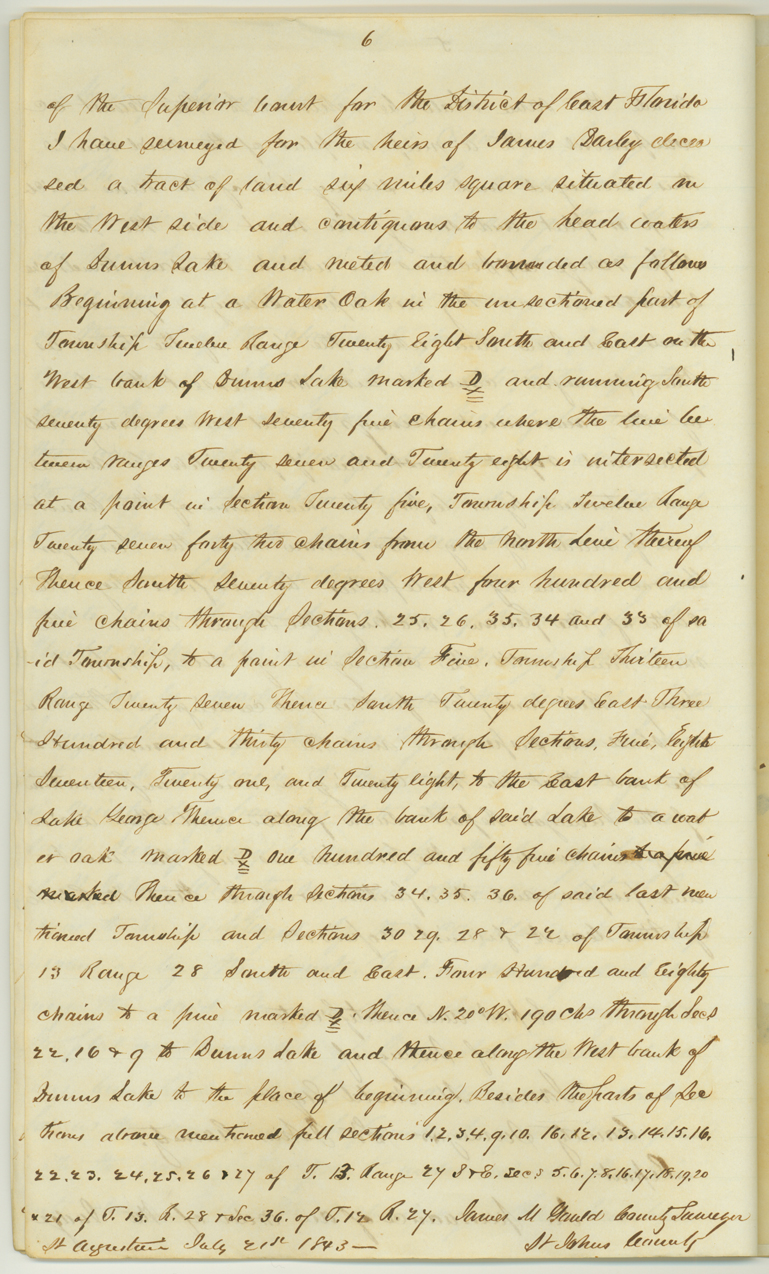 6
of the Superior Court for the District of East Florida
I have surveyed for the heirs of James Darley decea
sed a tract of land six miles square situated on
the West side and contiguous to the head waters
of Dunns Lake and meted and bounded as follows
Beginning at a Water Oak in the unsectioned part of
Township Twelve Range Twenty Eight South and East on the
West bank of Dunns Lake marked D X and running South
seventy degrees West seventy five chains where the line be
tween ranges Twenty seven and Twenty eight is intersected
at a point in Section Twenty five, Township Twelve Range
Twenty seven forty two chains from the North Line thereof
Thence South seventy degrees West four hundred and
five chains through Sections. 25. 26. 35. 34 and 33 of sa
-id Township, to a point in Section Five. Township Thirteen
Range Twenty seven Thence South Twenty degrees East Three
Hundred and thirty chains through Sections, Five, Eight
Seventeen, Twenty one, and Twenty eight, to the East bank of
Lake George Thence along the bank of said Lake to a wat
er oak marked D X one hundred and fifty five chains to a pine
marked Thence through Sections 34. 35. 36. of said last men
tioned Township and Sections 30 29. 28 & 22 of Township
13 Range 28 South and East. Four Hundred and Eighty
chains to a pine marked D X Thence N. 20° W. 190 Chs through Secs
22, 16 & 9 to Dunns Lake and thence along the West bank of
Dunns Lake to the place of beginning. Besides the parts of Sec
tions above mentioned full sections 1. 2. 3. 4. 9. 10. 16. 12. 13. 14. 15. 16.
22. 23. 24. 25. 26 & 27 of T. 13. Range 27 S & E. Secs 5. 6. 7. 8. 16. 17. 18. 19. 20
& 21 of T. 13. R. 28 & Sec 36. of T. 12 R. 27. James M Gould County Surveyor
St Augustine July 21st 1843 — St Johns County